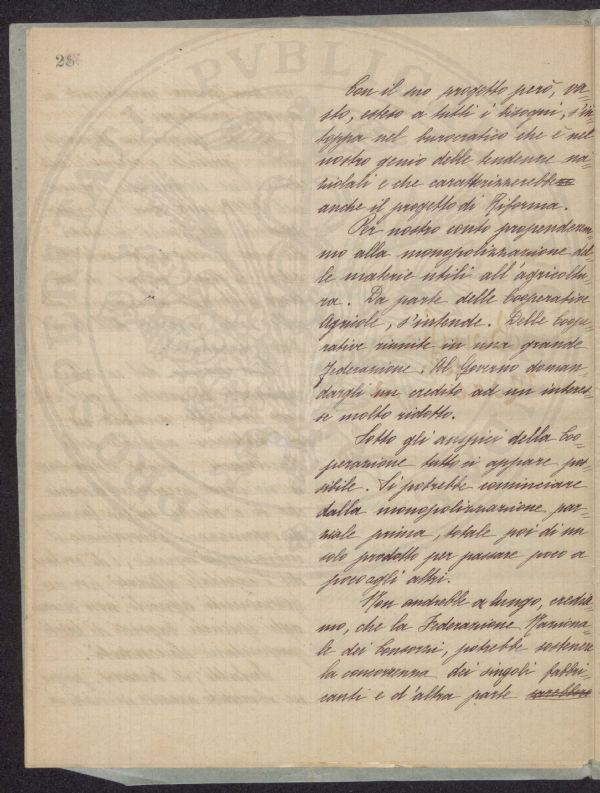 28
Con il suo progetto però, va-
sto, esteso a tutti i bisogni, s'in
toppa nel burocratico che è nel
nostro genio delle tendenze na-
ziolali e che caratterizzerebbe
anche il progetto di Riforma.
Per nostro conto propenderem
mo alla monopolizzazione del-
le materie utili all'agricoltu-
ra. Da parte delle Cooperative
Agricole, s'intende. Delle Coope-
rative riunite in una grande
Federazione. Al Governo doman-
dargli un credito ad un interes-
se molto ridotto.
Sotto gli auspici della Coo-
perazione tutto ci appare pos-
sibile. Si potrebbe cominciare
dalla monopolizzazione par-
ziale prima, totale poi di un
solo prodotto per passare poco a
poco agli altri.
Non andrebbe a lungo, credia-
mo, che la Federazione Naziona-
le dei Consorzi, potrebbe sostenere
la concorrenza dei singoli fabbri-
canti e d'altra parte sarebbero